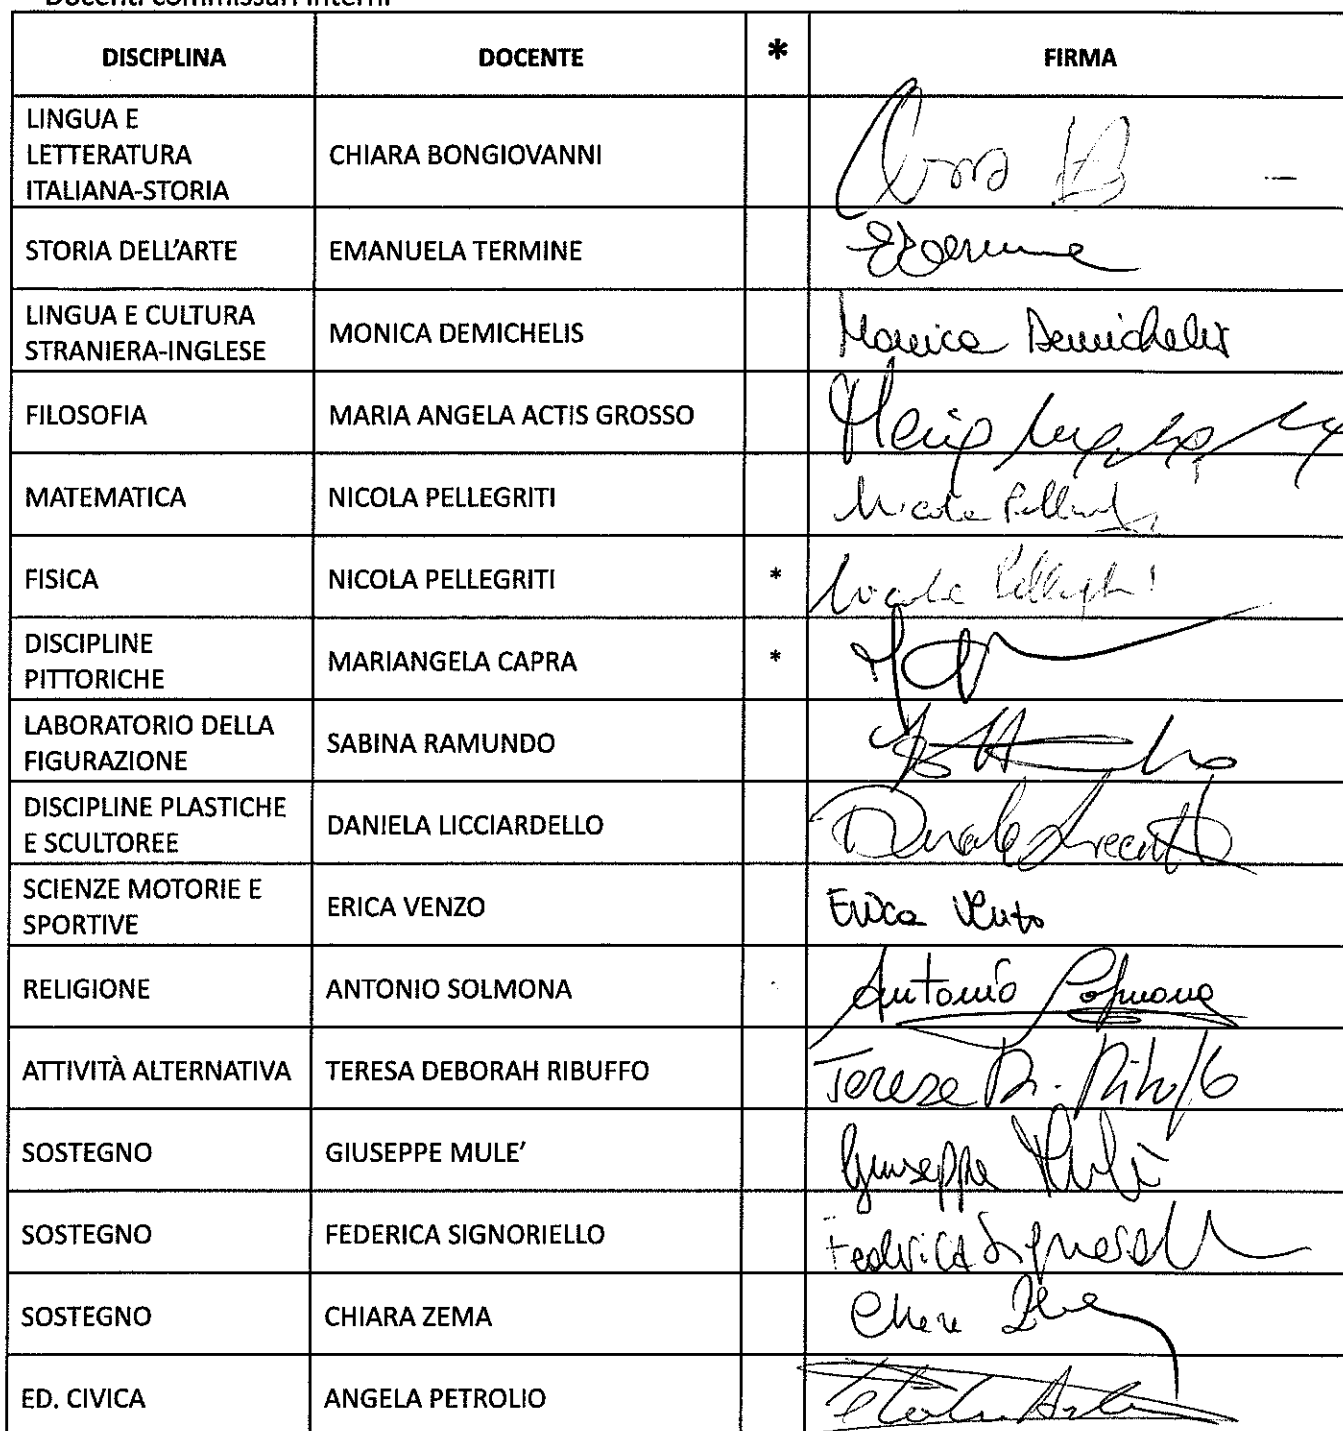 Docenti commissari interni
DISCIPLINA DOCENTE * FIRMA
LINGUA E
LETTERATURA
ITALIANA-STORIA
CHIARA BONGIOVANNI
STORIA DELL'ARTE EMANUELA TERMINE ETermine
LINGUA E CULTURA
STRANIERA-INGLESE
MONICA DEMICHELIS Monica Demichelis
FILOSOFIA MARIA ANGELA ACTIS GROSSO
MATEMATICA NICOLA PELLEGRITI Nicola
FISICA NICOLA PELLEGRITI * Nicola
DISCIPLINE
PITTORICHE
MARIANGELA CAPRA *
LABORATORIO DELLA
FIGURAZIONE
SABINA RAMUNDO
DISCIPLINE PLASTICHE
E SCULTOREE
DANIELA LICCIARDELLO
SCIENZE MOTORIE E
SPORTIVE
ERICA VENZO Erica Venzo
RELIGIONE ANTONIO SOLMONA Antonio Solmona
ATTIVITÀ ALTERNATIVA TERESA DEBORAH RIBUFFO Teresa D. Ribuffo
SOSTEGNO GIUSEPPE MULE' Giuseppe Mulè
SOSTEGNO FEDERICA SIGNORIELLO Federica
SOSTEGNO CHIARA ZEMA
ED. CIVICA ANGELA PETROLIO